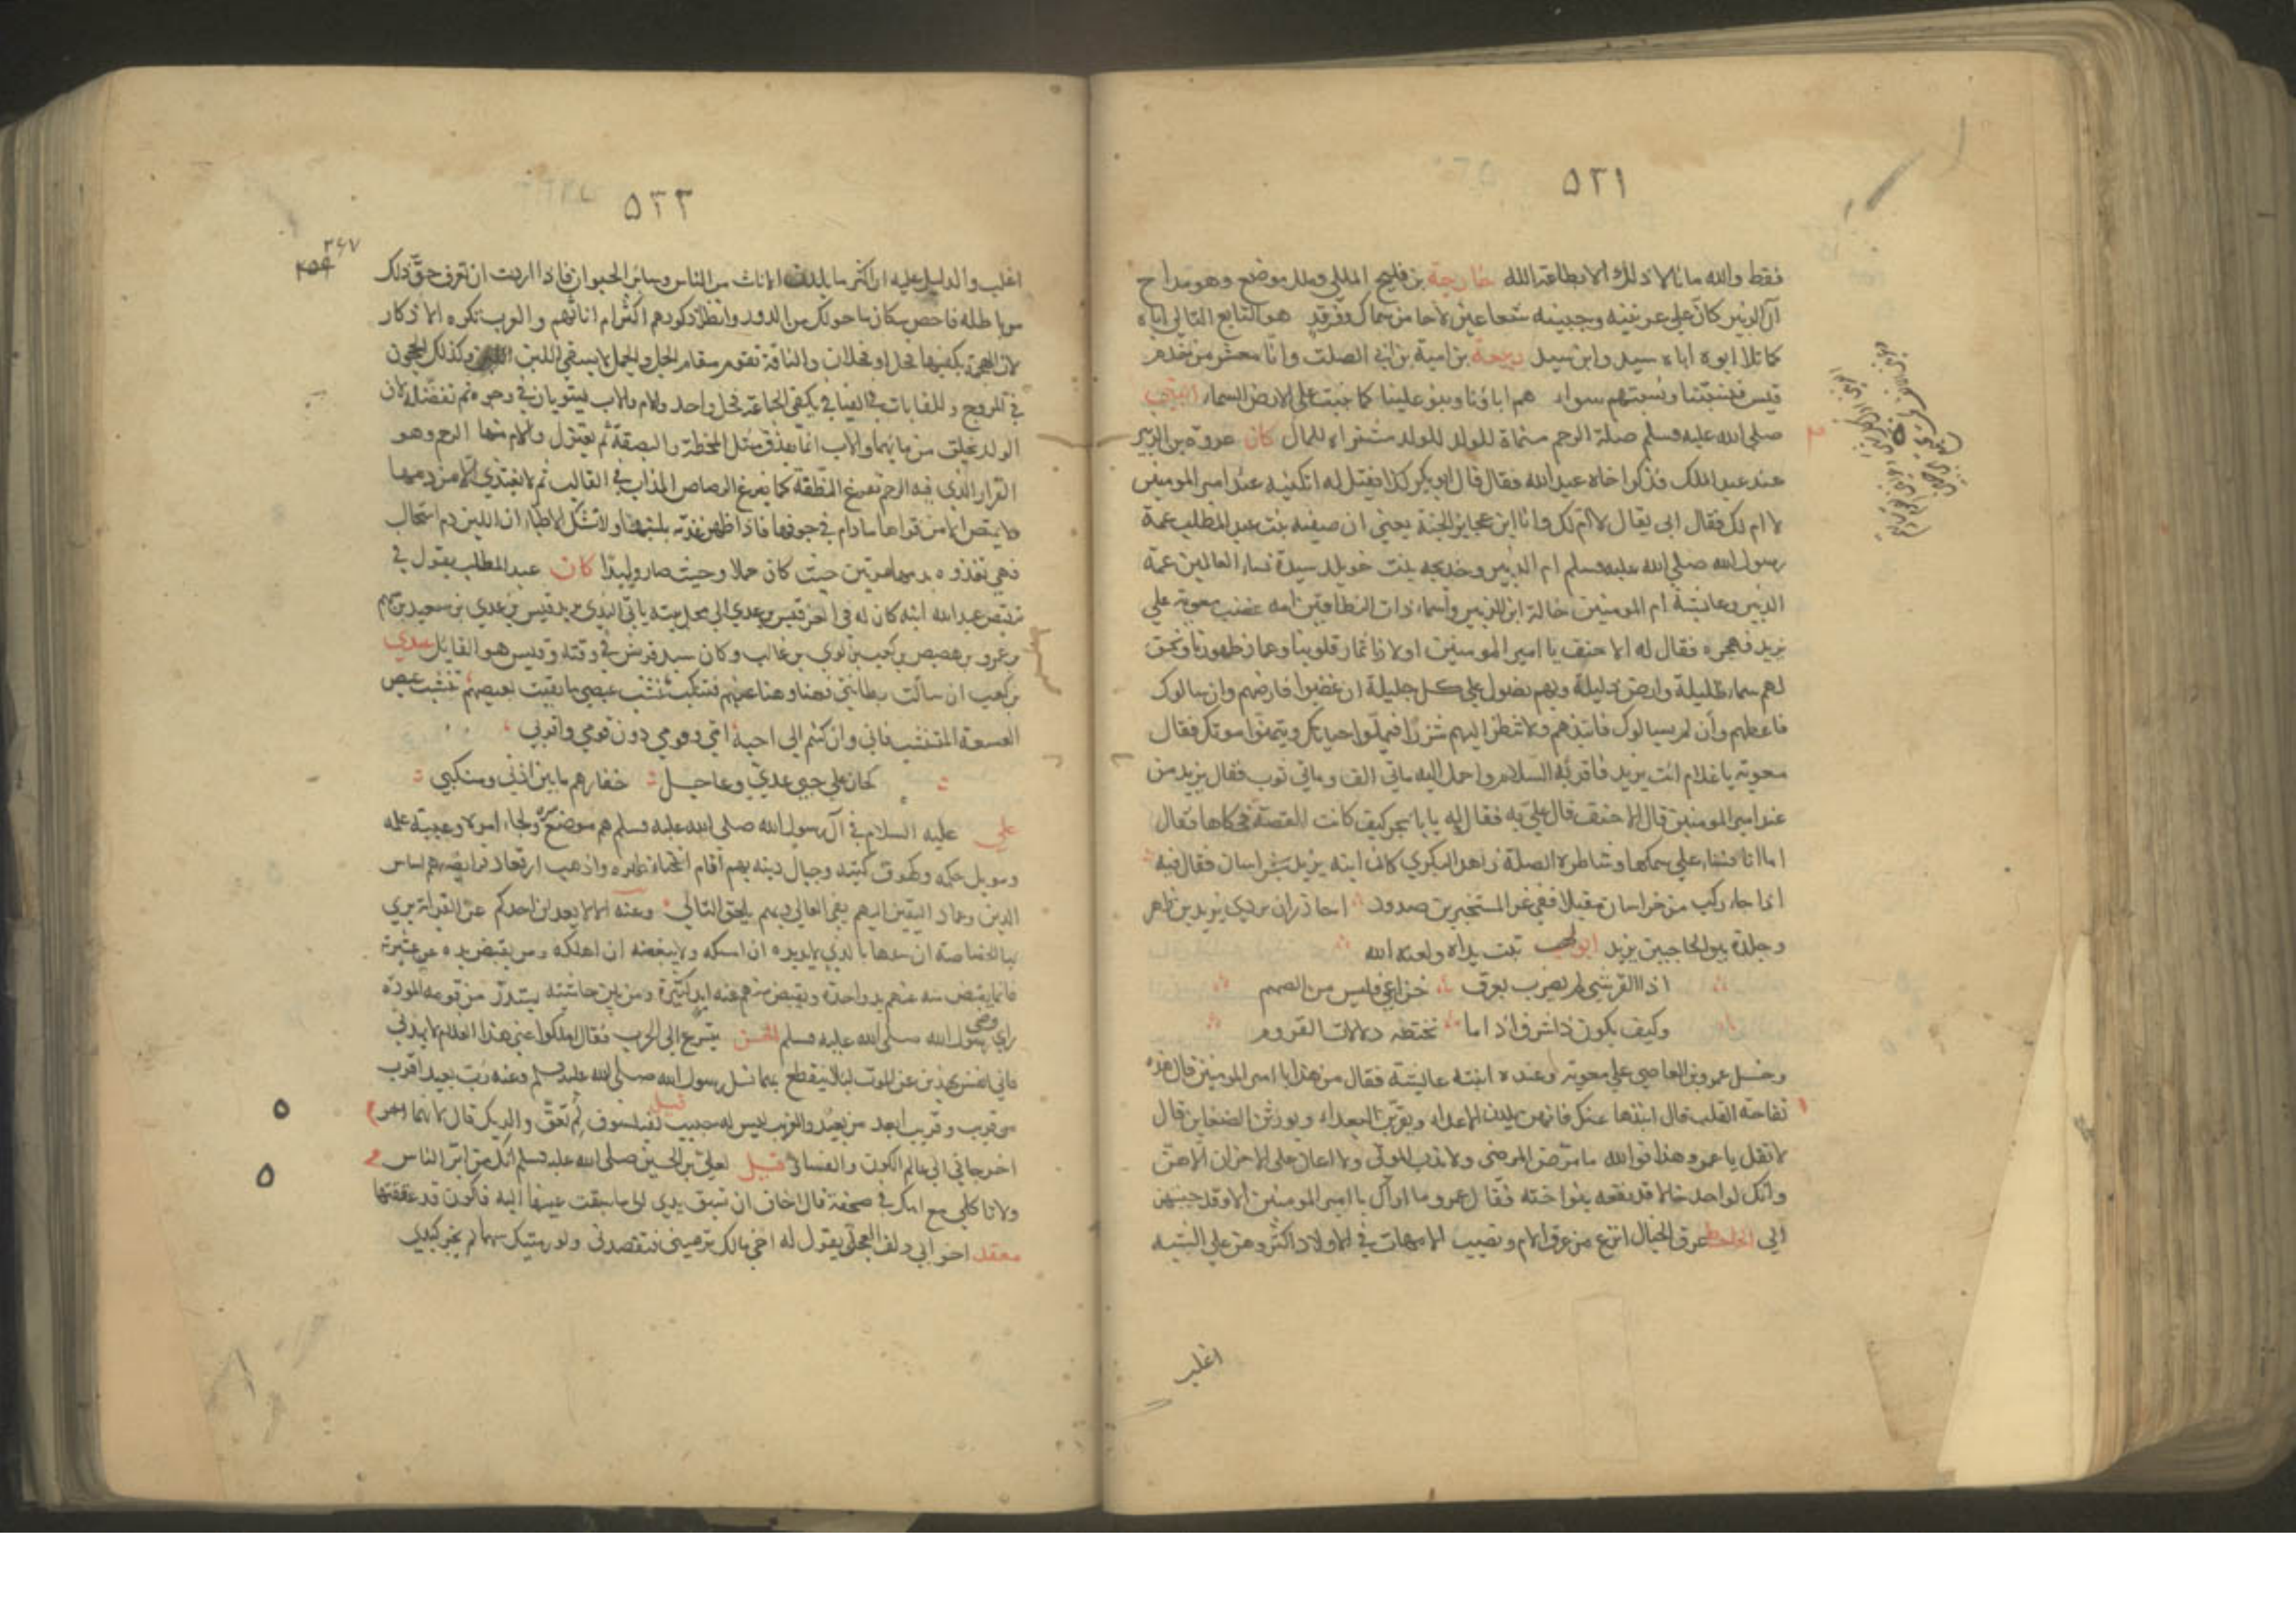 ٥٢١
فقط والله ما نالا ذلك الا بطاعة الله خارجة بن فليح المللي وملل موضع وهو مداح
آل الزبير كان على عرنينه وجبينه شعاعين لاحا من سماك وفرقد هو التابع التالي اباه
كما تلا ابوه اباه سيد وابن سيد ربيعة بن امية بن ابي الصلت وانا معشر من جذم
قيس فنسبتنا ونسبتهم سواء هم اباؤنا وبنو علينا كما نبتت على الارض السماء النبي
صلى الله عليه وسلم صلة الرحم منماة للولد مثراة للمال كان عروة بن الزبير
عند عبد الملك فذكر اخاه عبد الله فقال قال ابو بكر كذا فقيل له اتكنيه عند امير المومنين
لا ام لك فقال الي يقال لا ام لك وانا ابن عجايز الجنة يعني ان صفية بنت عبد المطلب عمة
رسول الله صلى الله عليه وسلم ام الزبير وخديجة بنت خويلد سيدة نساء العالمين عمة
الزبير وعائشة ام المومنين خالة ابن الزبير واسماء ذات النطاقين امه غضب معوية على
يزيد فهجره فقال له الاحنف يا امير المومنين اولادنا ثمار قلوبنا وعماد ظهورنا ونحن
لهم سماء ظليلة وارض ذليلة وبهم نصول على كل جليلة ان غضبوا فارضهم وان سالوك
فاعطهم وان لم يسالوك فابتدهم ولا تنظر اليهم شزرا فيملوا حياتك ويتمنوا موتك فقال
معوية يا غلام ائت يزيد فاقرئه السلام واحمل اليه مائتي الف ومائتي ثوب فقال يزيد من
عند امير المومنين قال الاحنف قال علي به فقال له يا ابا بحر كيف كانت القصة فحكاها فقال
اما انا فشاطره الصلة زاهد البكري كان ابنه يزيد بخراسان فقال فيه
اذا جاء ركب من خراسان مقبلا ففي غر المستخبرين صدود احاذر ان بردي يزيد بن ظاهر
وجلدة بين الحاجبين يزيد ابو لهب تبت يداه ولعنه الله
اذا القرشي لم يضرب بعرق خزاعي فليس من الصميم
وكيف يكون ذا شرف اذا ما تخطته دلالات القروم
دخل عمرو بن العاصي على معوية وعنده ابنته عائشة فقال من هذه يا امير المومنين قال هذه
تفاحة القلب قال انبذها عنك فانهن يلدن الاعداء ويقربن البعداء ويورثن الضغاين قال
لا تقل يا عمرو هذا فوالله ما مرض المرضى ولا ندب الموتى ولا اعان على الاحزان الا هن
وانك لواجد خالا قد نفعه بنو اخته فقال عمرو ما اراك يا امير المومنين الا وقد حببتهن
الي الجاحظ عرق الخال انزع من عرق الام ونصيب الامهات في الاولاد اكثر وهن على الشبه
اغلب
٥٢٢
٢٤٧
٢٥٩
اغلب والدليل عليه ان اكثر ما يلدن الاناث من الناس وسائر الحيوان فاذا اردت ان تعرف حق ذلك
من باطله فاحص سكان ما حولك من الدور وانظر اذكورهم اكثر ام اناثهم والعرب تكره الاذكار
لان الهجمة يكفيها فحل او فحلان والناقة تقوم مقام الجمل والجمل لا يسقي اللبن وكذلك الحجور
في المروج والعانات في الفيافي يكفي الجماعة فحل واحد والام والاب يستويان في وجوه ثم تفضله لان
الولد يخلق من مائهما والاب انما يقذف مثل المخطة والبصقة ثم يعتزل والام منها الرحم وهو
القرار الذي فيه الرحم تفرغ النطفة كما يفرغ الرصاص المذاب في القالب ثم لا يغتذي الا من دمها
ولا يمتص الا من قواها ما دام في جوفها فاذا ظهر غذته بلبنها ولا تشك الاطباء ان اللبن دم استحال
فهي تغذوه بدمها مرتين حيث كان حملا وحيث صار وليدا كان عبد المطلب يقول في
ترقيص عبد الله ابنه كان له في العز قيس بن عدي الى محل بيته ياتي الندي يريد قيس بن عدي بن سعيد بن سهم
بن عمرو بن هصيص بن كعب بن لوي بن غالب وكان سيد قريش في وقته وقيس هو القايل عدي
بن كعب ان سالت بطانتي فهنا وهنا عنهم فتنكب تنشب عيصي ما بقيت بعيصهم تنشب عيص
العوسجة المتنشب فاني وان كنتم الي احبة امتي وقومي دون قومي واقربي
كان على جيبي عدي وعاجل خفارهم ما بين اذني ومنكبي
علي عليه السلام في آل رسول الله صلى الله عليه وسلم هم موضع سره ولجاء امره وعيبة علمه
وموئل حكمه وكهوف كتبه وجبال دينه بهم اقام انحناء ظهره واذهب ارتعاد فرايصه هم اساس
الدين وعماد اليقين اليهم يفيء الغالي وبهم يلحق التالي وعنه الا لا يعدلن احدكم عن القرابة يرى
بها الخصاصة ان يسدها بالذي لا يزيده ان امسكه ولا ينقصه ان اهلكه ومن يقبض يده عن عشيرته
فانما يقبض منه عنهم يد واحدة وتقبض منهم عنه ايد كثيرة ومن تلن حاشيته يستدم من قومه المودة
راى رضي رسول الله صلى الله عليه وسلم الحسن يتسرع الى الحرب فقال املكوا عني هذا الغلام لا يهدني
فاني انفس بهذين عن الموت لئلا ينقطع بهما نسل رسول الله صلى الله عليه وسلم وعنه رب بعيد اقرب
من قريب وقريب ابعد من بعيد والغريب من ليس له حبيب قيل لفيلسوف لم تعق والديك قال لانهما
اخرجاني الى عالم الكون والفساد قيل لعلي بن الحسين صلى الله عليه وسلم انك من ابر الناس
ولا تاكل مع امك في صحفة قال اخاف ان تسبق يدي الى ما سبقت عينها اليه فاكون قد عققتها
معقد اخو ابي دلف العجلي يقول له اخي مالك ترميني فتقصدني ولو رميتك سهما لم يخز كبدي